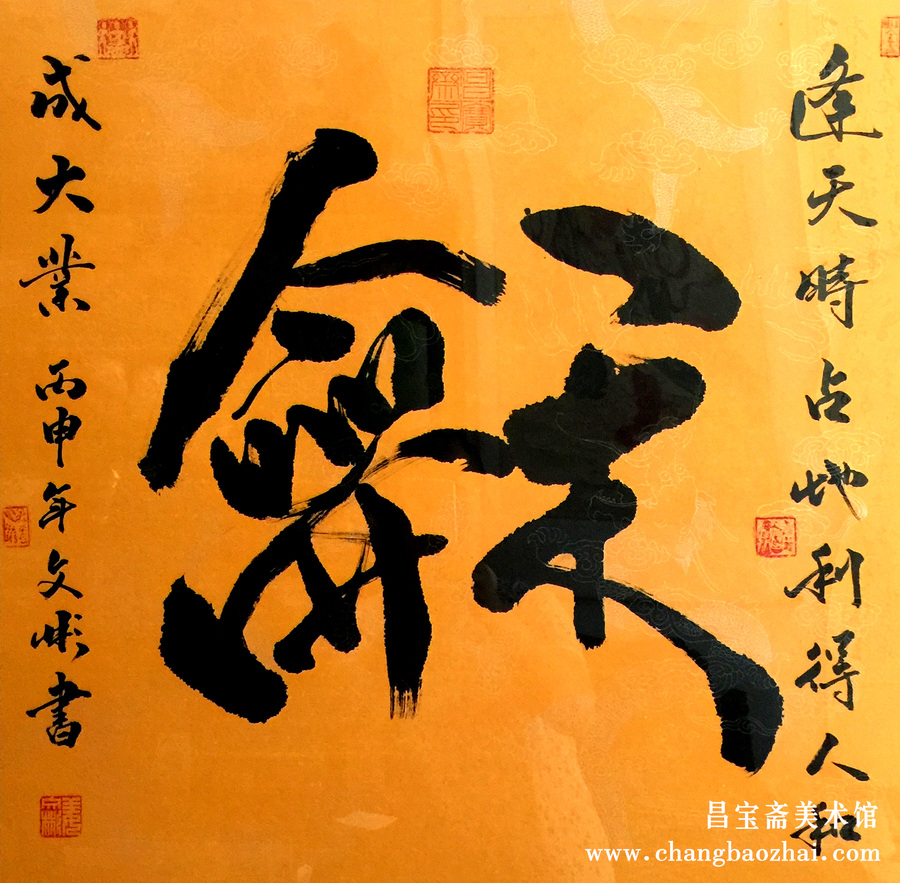 逢天時占地利得人和
龢
成大業
丙申年文書
昌寶齋印
昌宝斋美术馆
www.changbaozhai.com